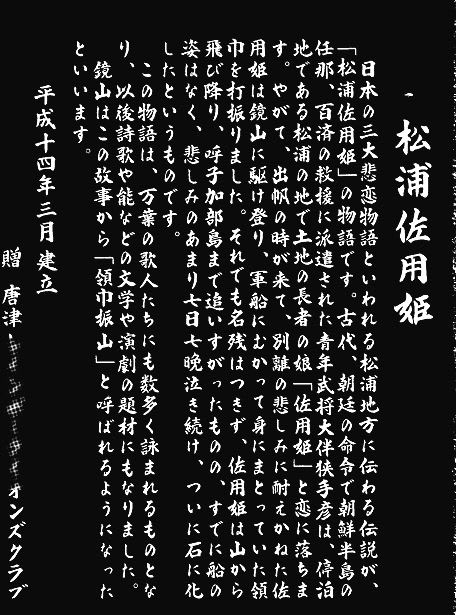 松浦佐用姫
日本の三大悲恋物語といわれる松浦地方に伝わる伝説が、
「松浦佐用姫」の物語です。古代、朝廷の命令で朝鮮半島の
任那、百済の救援に派遣された青年武将大伴狭手彦は、停泊
地である松浦の地で土地の長者の娘「佐用姫」と恋に落ちま
す。やがて、出帆の時が来て、別離の悲しみに耐えかねた佐
用姫は鏡山に駆け登り、軍船にむかって身にまとっていた領
巾を打振りました。それでも名残はつきず、佐用姫は山から
飛び降り、呼子加部島まで追いすがったものの、すでに船の
姿はなく、悲しみのあまり七日七晩泣き続け、ついに石に化
したというものです。
この物語は、万葉の歌人たちにも数多く詠まれるものとな
り、以後詩歌や能などの文学や演劇の題材にもなりました。
鏡山はこの故事から「領巾振山」と呼ばれるようになった
といいます。
平成十四年三月建立
贈 唐津
オンズクラブ